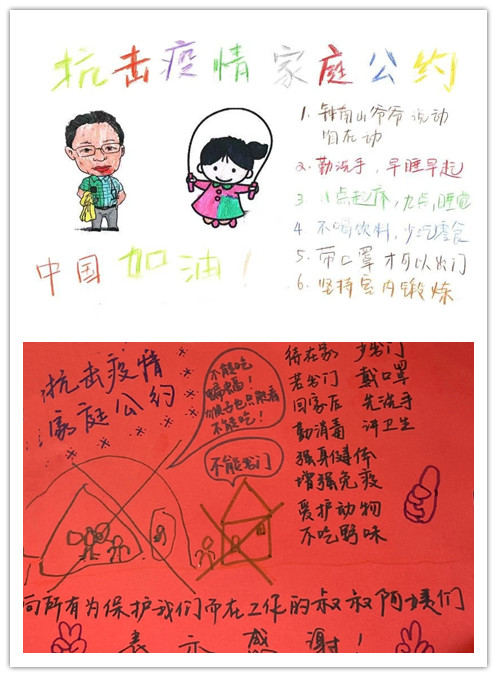 抗击疫情家庭公约
1. 钟南山爷爷说动
咱在动
2. 勤洗手，早睡早起
3 八点起床，九点睡觉
4 不喝饮料，少吃零食
5. 带口罩才可以出门
6. 坚持室内锻炼
中国加油！
抗击疫情
家庭公约
不能吃
蝙蝠！
不能吃！
不能出门
待在家 少出门
若出门 戴口罩
回家后 先洗手
勤消毒 讲卫生
强身健体
增强免疫
爱护动物
不吃野味
向所有为保护我们而在工作的叔叔阿姨们
表示感谢！